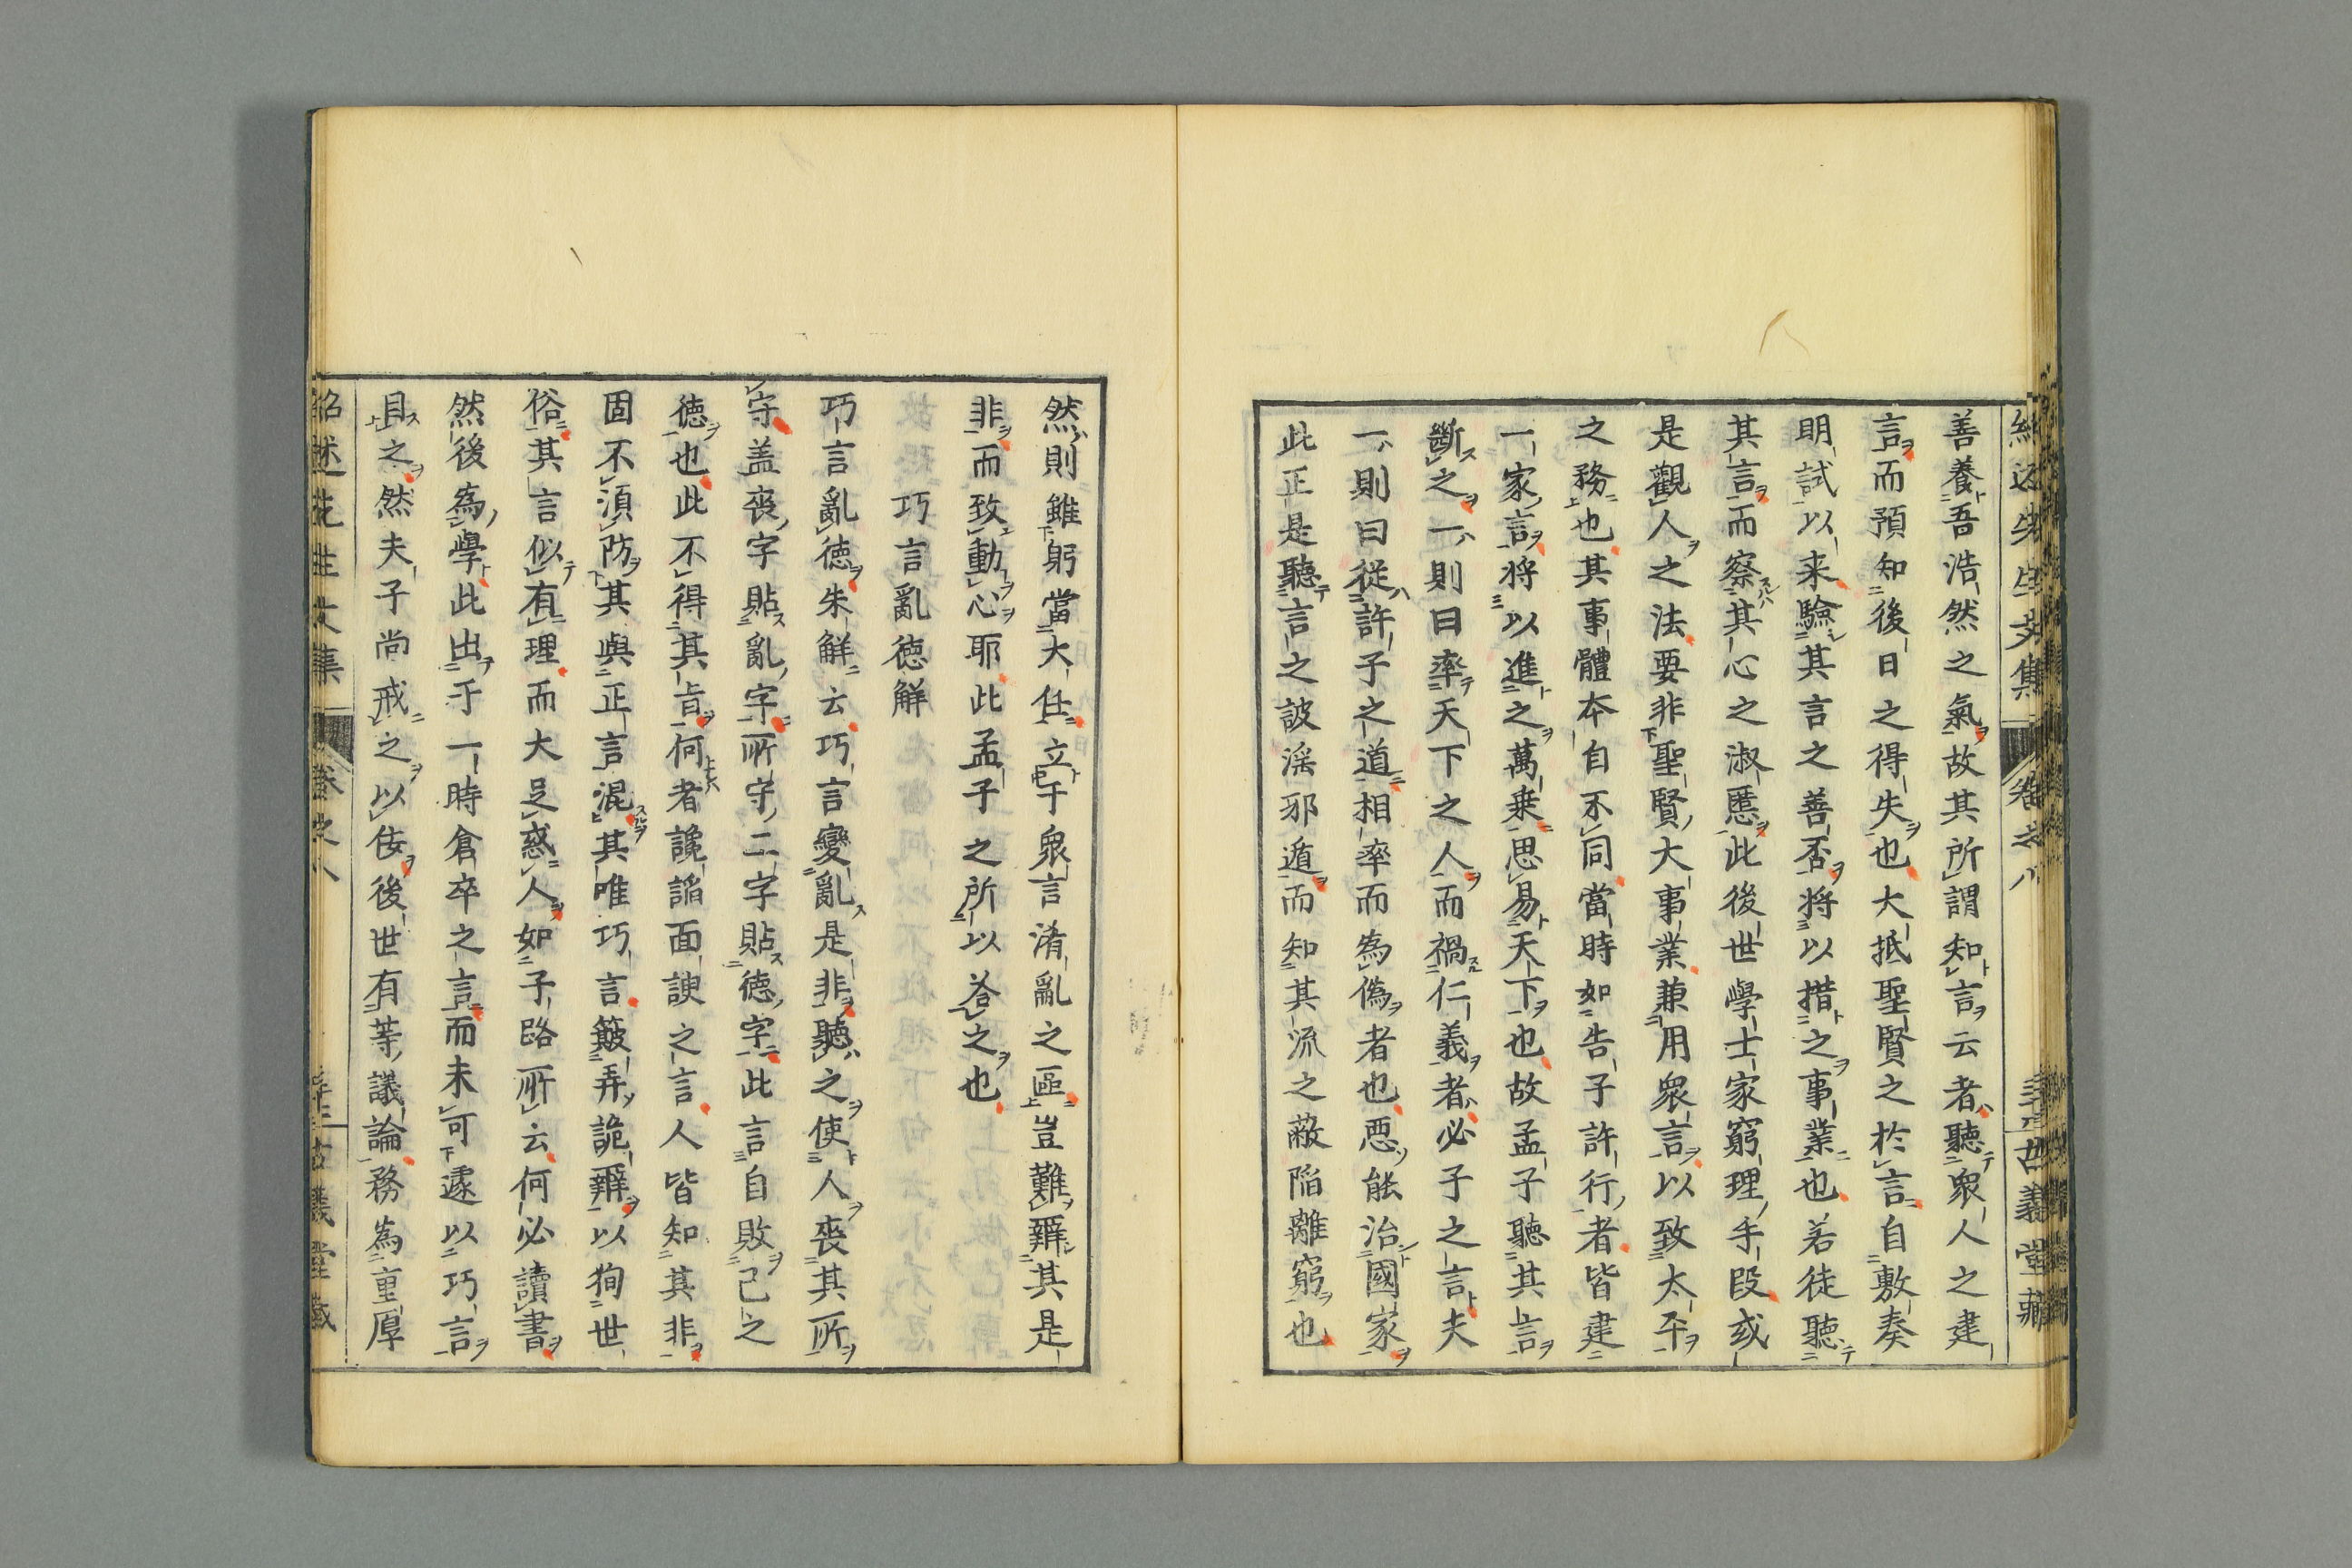 紹述先生文集 卷之八 古義堂藏
善養吾浩然之氣故其所謂知言云者聽衆人之建
言而預知後日之得失也大抵聖賢之於言自敷奏
明試以来驗其言之善否將以措之事業也若徒聽
其言而察其心之淑慝此後世學士家窮理手段或
是觀人之法要非聖賢大事業兼用衆言以致太平
之務也其事體本自不同當時如告子許行者皆建
一家言将以進之萬乗思易天下也故孟子聽其言
斷之一則曰率天下之人而禍仁義者必子之言夫
一則曰從許子之道相率而為偽者也惡能治國家
此正是聽言之詖淫邪遁而知其流之蔽陷離窮也
然則雖躬當大任立于衆言淆亂之區豈難辨其是
非而致動心耶此孟子之所以荅之也
巧言亂德解
巧言亂德朱解云巧言變亂是非聽之使人喪其所
守盖喪字貼亂字所守二字貼德字此言自敗己之
德也此不得其旨何者讒諂面諛之言人皆知其非
固不須防其與正言混其唯巧言簸弄詭辯以狥世
俗其言似有理而大足惑人如子路所云何必讀書
然後為學此出于一時倉卒之言而未可遽以巧言
目之然夫子尚戒之以佞後世有等議論務為重厚
紹述先生文集 卷之八 古義堂藏